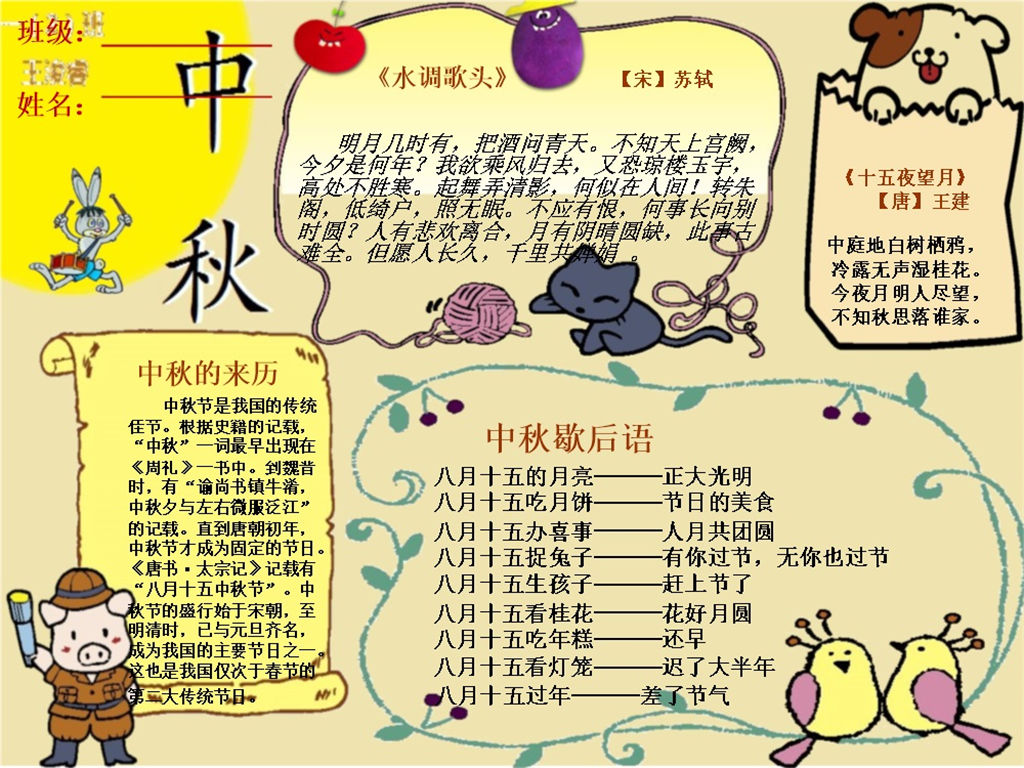 班级：
姓名：
中
秋
《水调歌头》 【宋】苏轼
明月几时有，把酒问青天。不知天上宫阙，
今夕是何年？我欲乘风归去，又恐琼楼玉宇，
高处不胜寒。起舞弄清影，何似在人间！转朱
阁，低绮户，照无眠。不应有恨，何事长向别
时圆？人有悲欢离合，月有阴晴圆缺，此事古
难全。但愿人长久，千里共婵娟 。
《十五夜望月》
【唐】王建
中庭地白树栖鸦，
冷露无声湿桂花。
今夜月明人尽望，
不知秋思落谁家。
中秋的来历
中秋节是我国的传统
佳节。根据史籍的记载，
“中秋”一词最早出现在
《周礼》一书中。到魏晋
时，有“谕尚书镇牛淆，
中秋夕与左右微服泛江”
的记载。直到唐朝初年，
中秋节才成为固定的节日。
《唐书·太宗记》记载有
“八月十五中秋节”。中
秋节的盛行始于宋朝，至
明清时，已与元旦齐名，
成为我国的主要节日之一。
这也是我国仅次于春节的
第二大传统节日。
中秋歇后语
八月十五的月亮———正大光明
八月十五吃月饼———节日的美食
八月十五办喜事———人月共团圆
八月十五捉兔子———有你过节，无你也过节
八月十五生孩子———赶上节了
八月十五看桂花———花好月圆
八月十五吃年糕———还早
八月十五看灯笼———迟了大半年
八月十五过年———差了节气